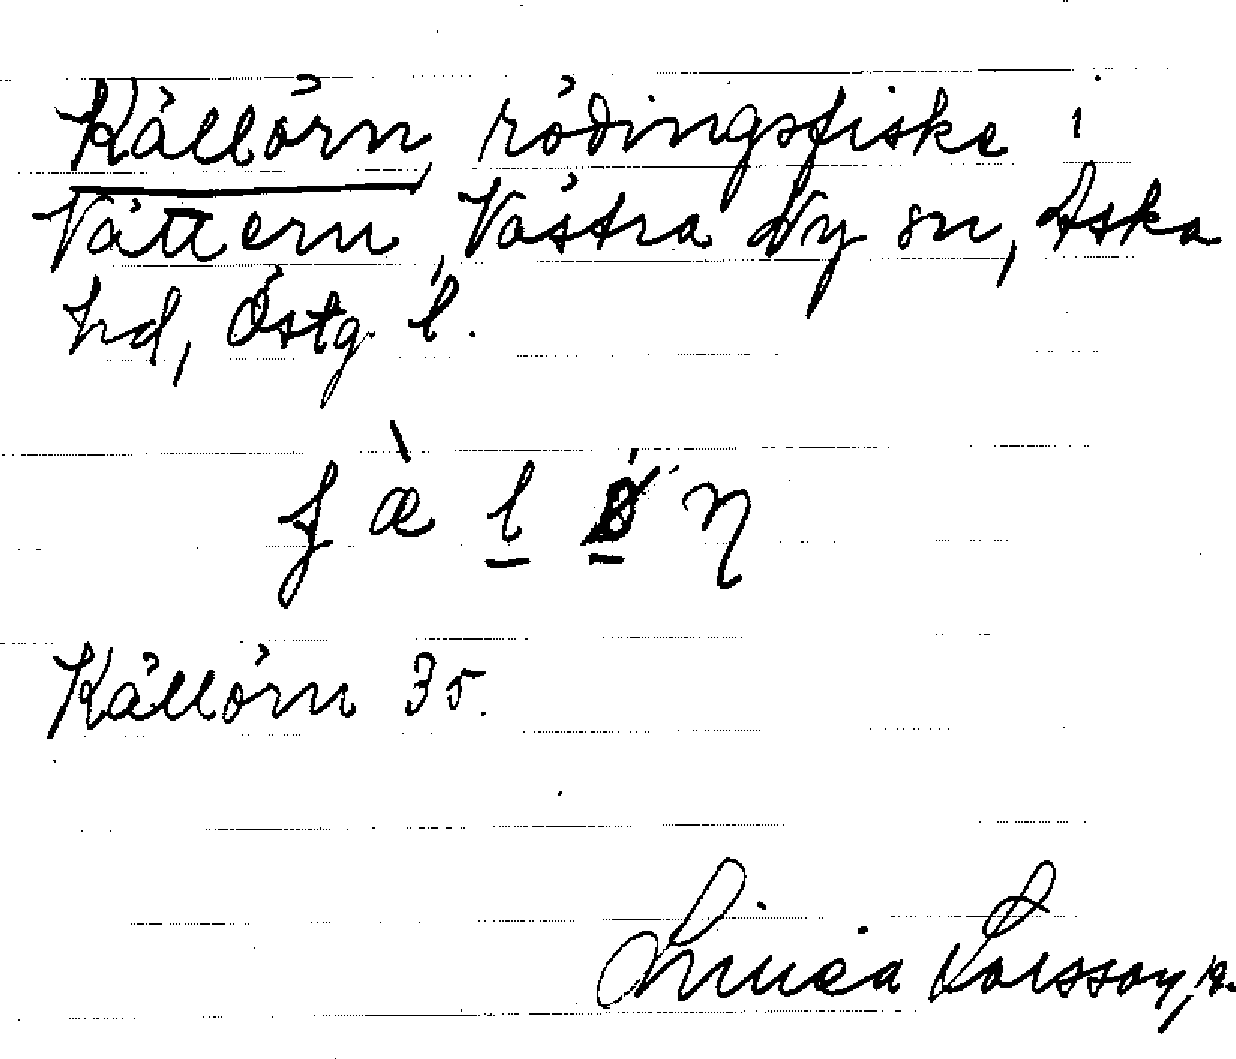 Källörn, rödingsfiske i
Vättern, Västra Ny sn, Aska
hd, Östg. l.
Källörn 35.
Linnea Larsson,